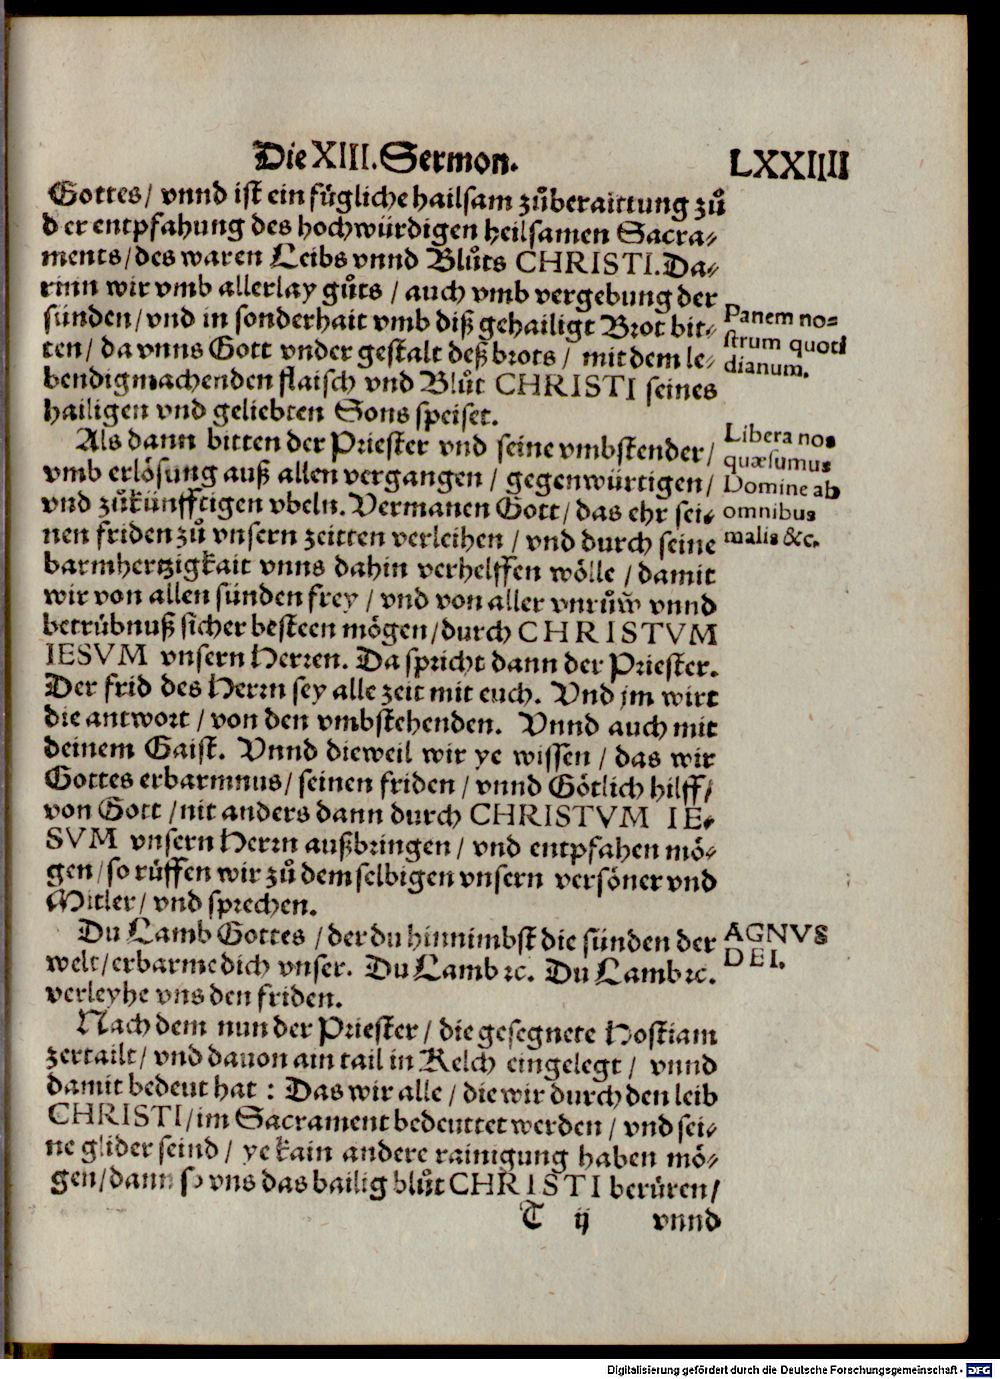 Die XIII. Sermon. LXXIIII
Gottes/ vnnd ist ein fügliche hailsam zůberaittung zů
der entpfahung des hochwürdigen heilsamen Sacra⸗
ments/des waren Leibs vnnd Blůts CHRISTI. Da⸗
rinn wir vmb allerlay gůts / auch vmb vergebung der
sünden/vnd in sonderhait vmb diß gehailigt Brot bit⸗
ten/ da vnns Gott vnder gestalt deß brots/ mit dem le⸗
bendigmachenden flaisch vnd Blůt CHRISTI seines
hailigen vnd geliebten Sons speiset.
Panem no=
strum quoti
dianum.
Als dann bitten der Priester vnd seine vmbstender/
vmb erlösung auß allen vergangen / gegenwürtigen/
vnd zůkünfftigen vbeln. Vermanen Gott/ das ehr sei⸗
nen friden zů vnsern zeitten verleihen / vnd durch seine
barmhertzigkait vnns dahin verhelffen wölle / damit
wir von allen sünden frey / vnd von aller vnrůw vnnd
betrübnuß sicher besteen mögen/durch CHRISTVM
IESVM vnsern Herren. Da spricht dann der Priester.
Der frid des Herrn sey alle zeit mit euch. Vnd jm wirt
die antwort / von den vmbstehenden. Vnnd auch mit
deinem Gaist. Vnnd dieweil wir ye wissen / das wir
Gottes erbarmnus/ seinen friden / vnnd Götlich hilff/
von Gott /nit anders dann durch CHRISTVM IE⸗
SVM vnsern Herrn außbringen / vnd entpfahen mö⸗
gen/so rüffen wir zů demselbigen vnsern versöner vnd
Mitler/ vnd sprechen.
Libera nos
quæsumus
Domine ab
omnibus
malis &c.
Du Lamb Gottes /der du hinnimbst die sünden der
welt/erbarme dich vnser. Du Lamb ⁊c. Du Lamb ⁊c.
verleyhe vns den friden.
AGNVS
DEI.
Nach dem nun der Priester/ die gesegnete Hostiam
zertailt/ vnd dauon ain tail in Kelch eingelegt/ vnnd
damit bedeut hat : Das wir alle / die wir durch den leib
CHRISTI/im Sacrament bedeuttet werden / vnd sei⸗
ne glider seind / ye kain andere rainigung haben mö⸗
gen/dann so vns das hailig blůt CHRISTI berüren/
T ij vnnd
Digitalisierung gefördert durch die Deutsche Forschungsgemeinschaft - DFG